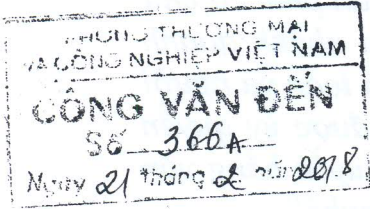 PHÒNG THƯƠNG MẠI
VÀ CÔNG NGHIỆP VIỆT NAM
CÔNG VĂN ĐẾN
Số 366A
Ngày 21 tháng 2 năm 2018